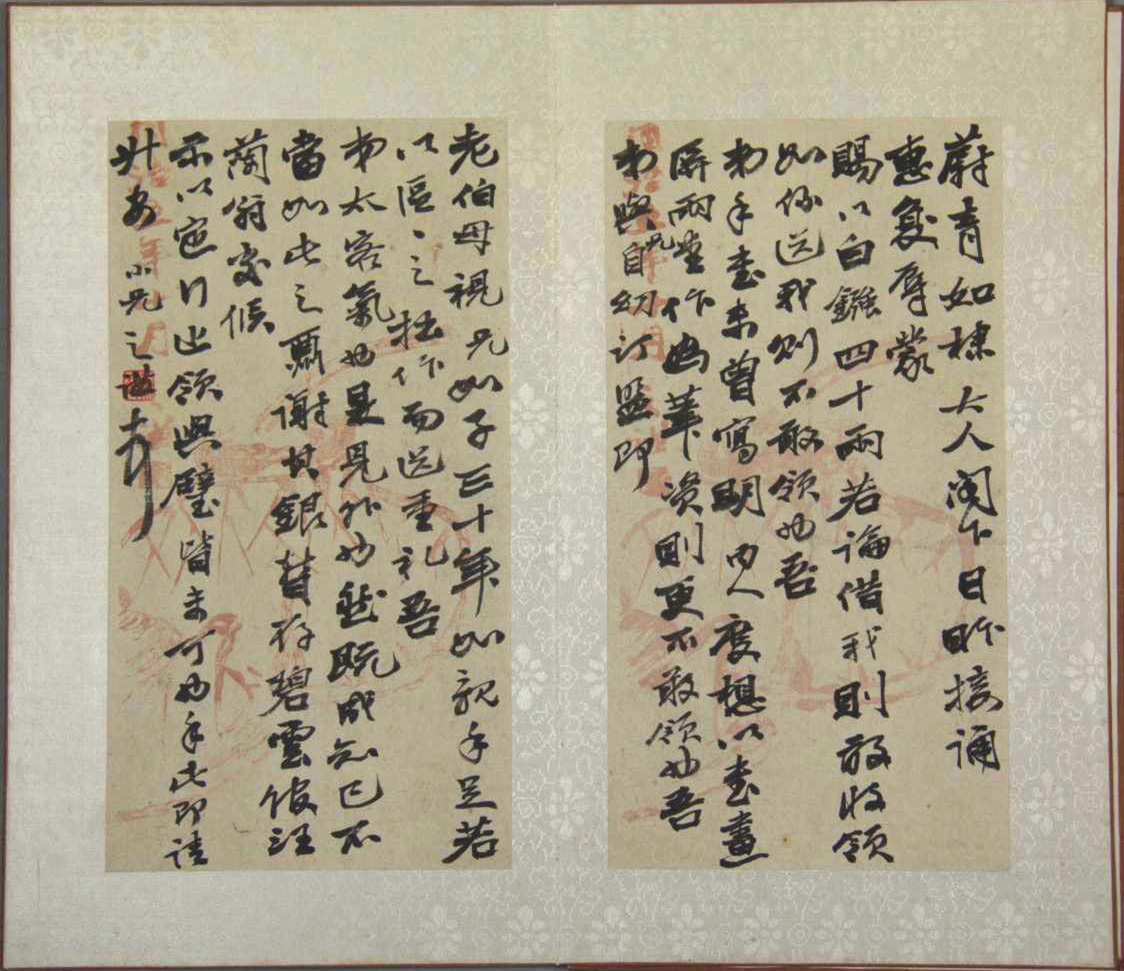 蔚青如棣大人阁下日昨接誦
惠复辱蒙
賜以白鏹四十兩若論借我則敢收領
如係送我則不敢領也吾
弟手書未曾寫明内人度想以書畫
屏兩堂作為筆資則更不敢領也吾
弟與兄自幼訂盟即
老伯母視兄如子三十年如親手足若
以區〻之拙作而送重礼吾
弟太客氣也是見外也然既成知己不
當如此之鄙謝其銀暫存碧雲館汪
蘭翁處候
示以定行止領與璧皆未可也手此即請
升安 小兄之